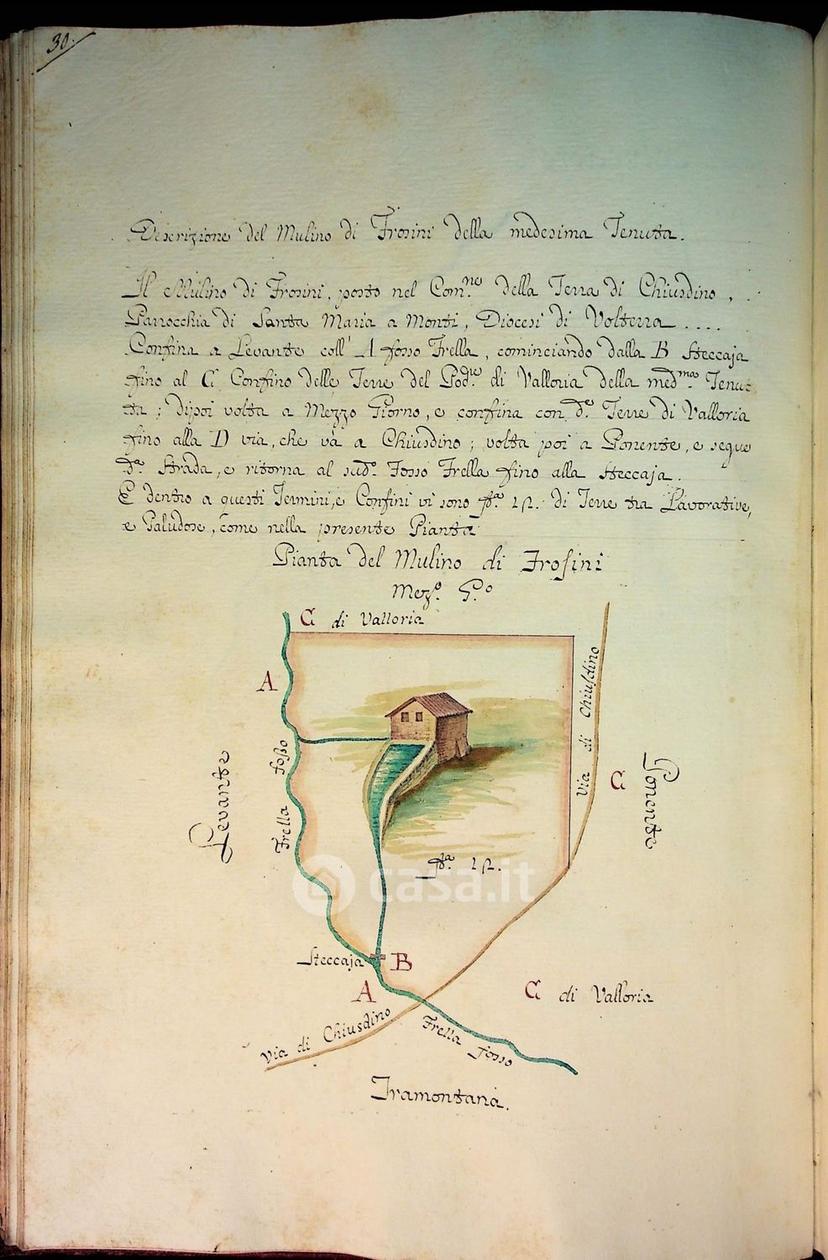 30.
Descrizione del Mulino di Frosini della medesima Tenuta.
Il Mulino di Frosini, posto nel Com.ne della Terra di Chiusdino,
Parrocchia di Santa Maria a Monti, Diocesi di Volterra ....
Confina a Levante coll' A fosso Frella, cominciando dalla B Steccaja
fino al C Confino delle Terre del Pod.re di Valloria della med.ma Tenu=
ta; dipoi volta a Mezzo Giorno, e confina con d.e Terre di Valloria
fino alla D via, che và a Chiusdino; volta poi a Ponente, e segue
d.a Strada, e ritorna al sud.o Fosso Frella fino alla Steccaja.
E dentro a questi Termini, e Confini vi sono di Terre tra Lavorative,
e Paludose, come nella presente Pianta
Pianta del Mulino di Frosini
Mez.o G.o
C di Valloria
A
Levante
Frella fosso
Via di Chiusdino
C
Ponente
casa.it
Steccaja
B
A
C di Valloria
Via di Chiusdino
Frella Fosso
Tramontana.